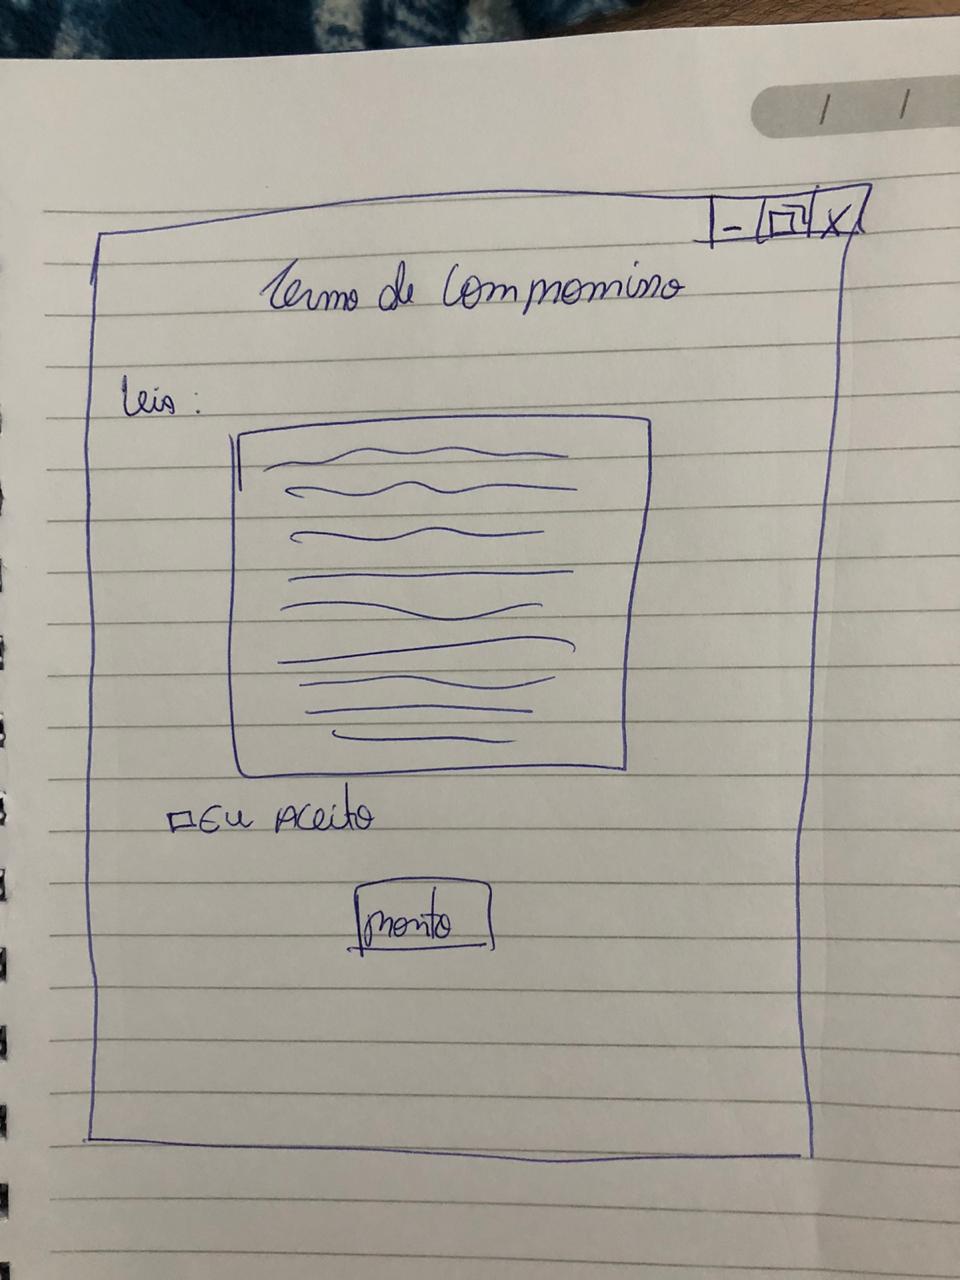 Termo de Compromisso
leis:
Eu Aceito
pronto